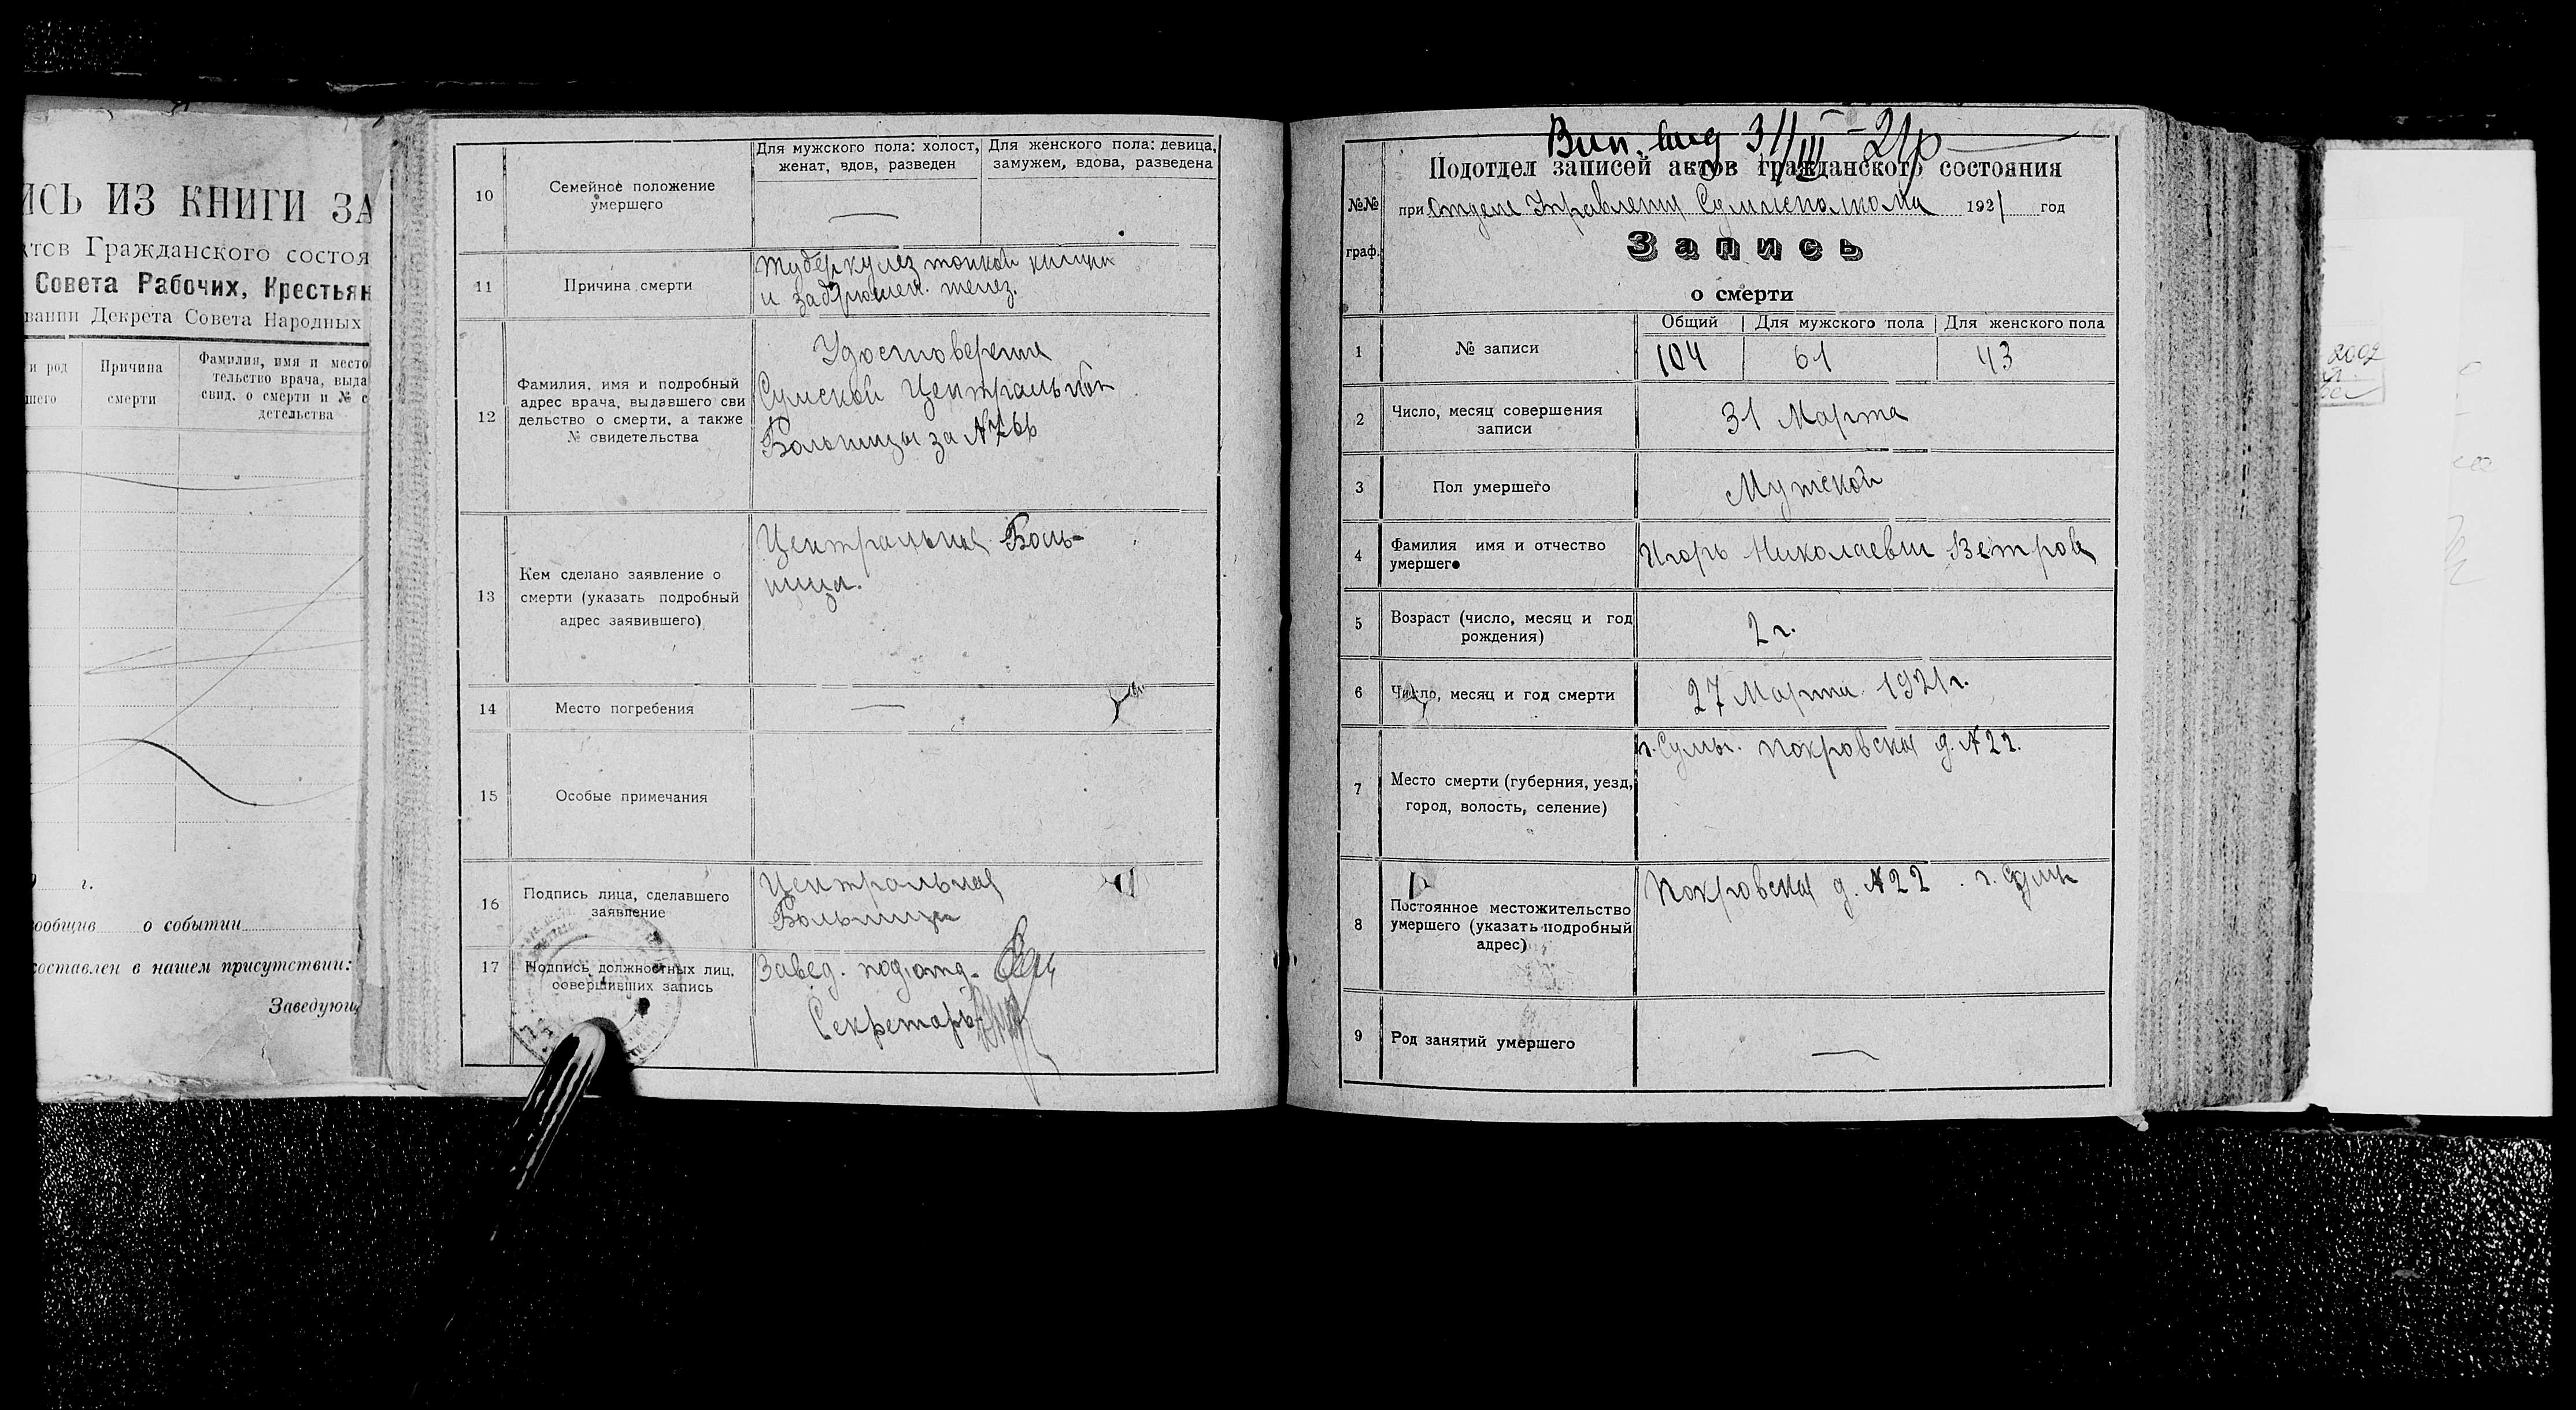 ИСЬ ИЗ КНИГИ ЗА
ктов Гражданского состоя
Совета Рабочих, Крестьян
вании Декрета Совета Народных
и род
шего
Причина
смерти
Фамилия, имя и место
тельство врача, выда
свид. о смерти и № с
детельства
г.
сообщив о событии
составлен в нашем присутствии:
Заведующ
10
Семейное положение
умершего
Для мужского пола: холост,
женат, вдов, разведен
Для женского пола: девица,
замужем, вдова, разведена
—
11
Причина смерти
туберкулез тонкой кишки
и забрюшен. желез.
12
Фамилия, имя и подробный
адрес врача, выдавшего сви
дельство о смерти, а также
№ свидетельства
Удостоверение
Сумской Центральной
Больницы за №
13
Кем сделано заявление о
смерти (указать подробный
адрес заявившего)
Центральная Боль-
ница.
14
Место погребения
—
15
Особые примечания
16
Подпись лица, сделавшего
заявление
Центральная
Больница
17
Подпись должностных лиц,
совершивших запись
Завед. подотд.
Секретарь
31/III-21р
Подотдел записей актов гражданского состояния
№№
граф.
при Отделе Управления Сумисполкома 1921 год
Запись
о смерти
1
№ записи
Общий
Для мужского пола
Для женского пола
104
61
43
2
Число, месяц совершения
записи
31 Марта
3
Пол умершего
Мужской
4
Фамилия имя и отчество
умершего
Игорь Николаевич Ветров
5
Возраст (число, месяц и год
рождения)
2 г.
6
Число, месяц и год смерти
27 Марта 1921 г.
7
Место смерти (губерния, уезд,
город, волость, селение)
г. Сумы. Покровская д. № 22.
8
Постоянное местожительство
умершего (указать подробный
адрес)
Покровская д. № 22. г. Сумы
9
Род занятий умершего
—
2002